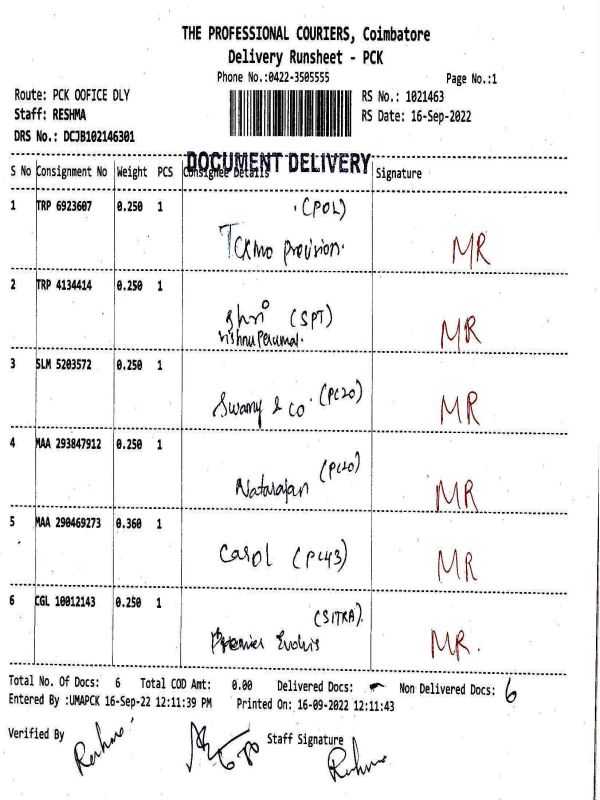 THE PROFESSIONAL COURIERS, Coimbatore
Delivery Runsheet - PCK
Phone No.:0422-3505555 Page No.:1
Route: PCK OOFICE DLY RS No.: 1021463
Staff: RESHMA RS Date: 16-Sep-2022
DRS No.: DCJB102146301
DOCUMENT DELIVERY
S No Consignment No Weight PCS Consignee Details Signature
1 TRP 6923607 0.250 1 (POL)
provision. MR
2 TRP 4134414 0.250 1
Shri (SPT) MR
Vishnu Perumal.
3 SLM 5203572 0.250 1
Swamy & Co. (PC20) MR
4 MAA 293847912 0.250 1
Natarajan (PC20) MR
5 MAA 290469273 0.360 1
Carol (PC43) MR
6 CGL 10012143 0.250 1
(SITRA).
Premier MR.
Total No. Of Docs: 6 Total COD Amt: 0.00 Delivered Docs: - Non Delivered Docs: 6
Entered By :UMAPCK 16-Sep-22 12:11:39 PM Printed On: 16-09-2022 12:11:43
Verified By Staff Signature
Reshma Reshma